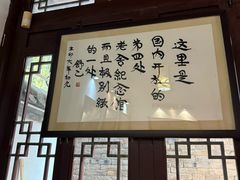 这里是
国内开的
第四处
老舍纪念馆
而且极别緻
的一处
舒乙